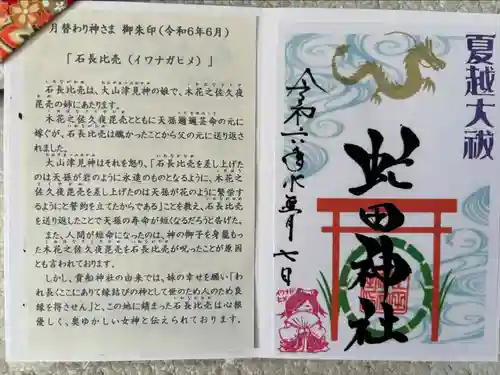 月替わり神さま 御朱印(令和6年6月)
「石長比売(イワナガヒメ)」
石長比売は、大山津見神の娘で、木花之佐久夜
毘売の姉にあたります。
木花之佐久夜毘売とともに天孫邇邇芸命の元に
嫁ぎが、石長比売は醜かったことから父の元に送り返さ
れました。
大山津見神はそれを怒り、「石長比売を差し上げた
のは天孫が岩のように永遠のものとなるように、木花之
佐久夜毘売を差し上げたのは天孫が花のように繁栄す
るようにと誓約を立てたからである」ことを教え、石長比売
を送り返したことで天孫の寿命が短くなるだろうと告げた。
また、人間が短命になったのは、神の御子を身籠もっ
た木花之佐久夜毘売を石長比売が呪ったことが原因
とも言われております。
しかし、貴船神社の由来では、妹の幸せを願い「わ
れ長くここにありて縁結びの神として世のため人のため良
縁を得させん」と、この地に鎮まった石長比売は心根
優しく、奥ゆかしい女神と伝えられております。
夏越大祓
虻田神社
令和六年水無月七日
イワナガヒメ